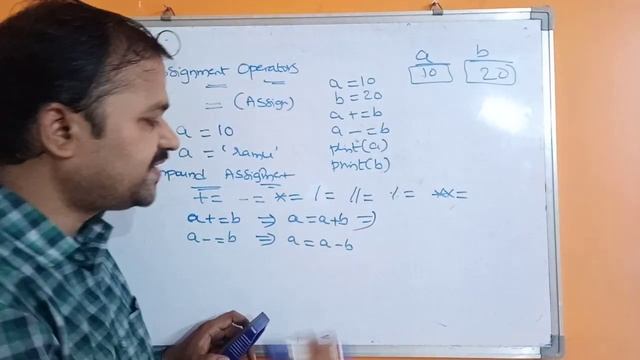 ssignment Operators
= (Assign)
a = 10
a = 'ramu'
pound Assignment
+= -= *= /= //= %= **=
a+=b ⇒ a=a+b ⇒
a-=b ⇒ a=a-b
a=10
b=20
a+=b
a-=b
print(a)
print(b)
a b
10 20